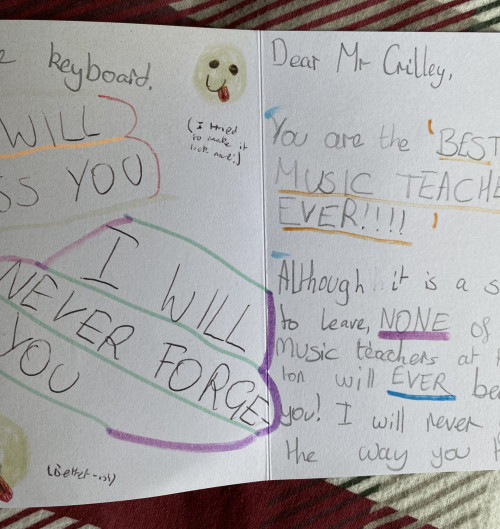 keyboard.
(I tried
to make it
look nice!)
WILL
SS YOU
I WILL
NEVER FORGE
YOU
(Better-ish)
Dear Mr Crilley,
You are the 'BEST
MUSIC TEACHE
EVER!!!!'
Although it is a s
to leave, NONE of
Music teachers at
ion will EVER bea
you! I will never
the way you